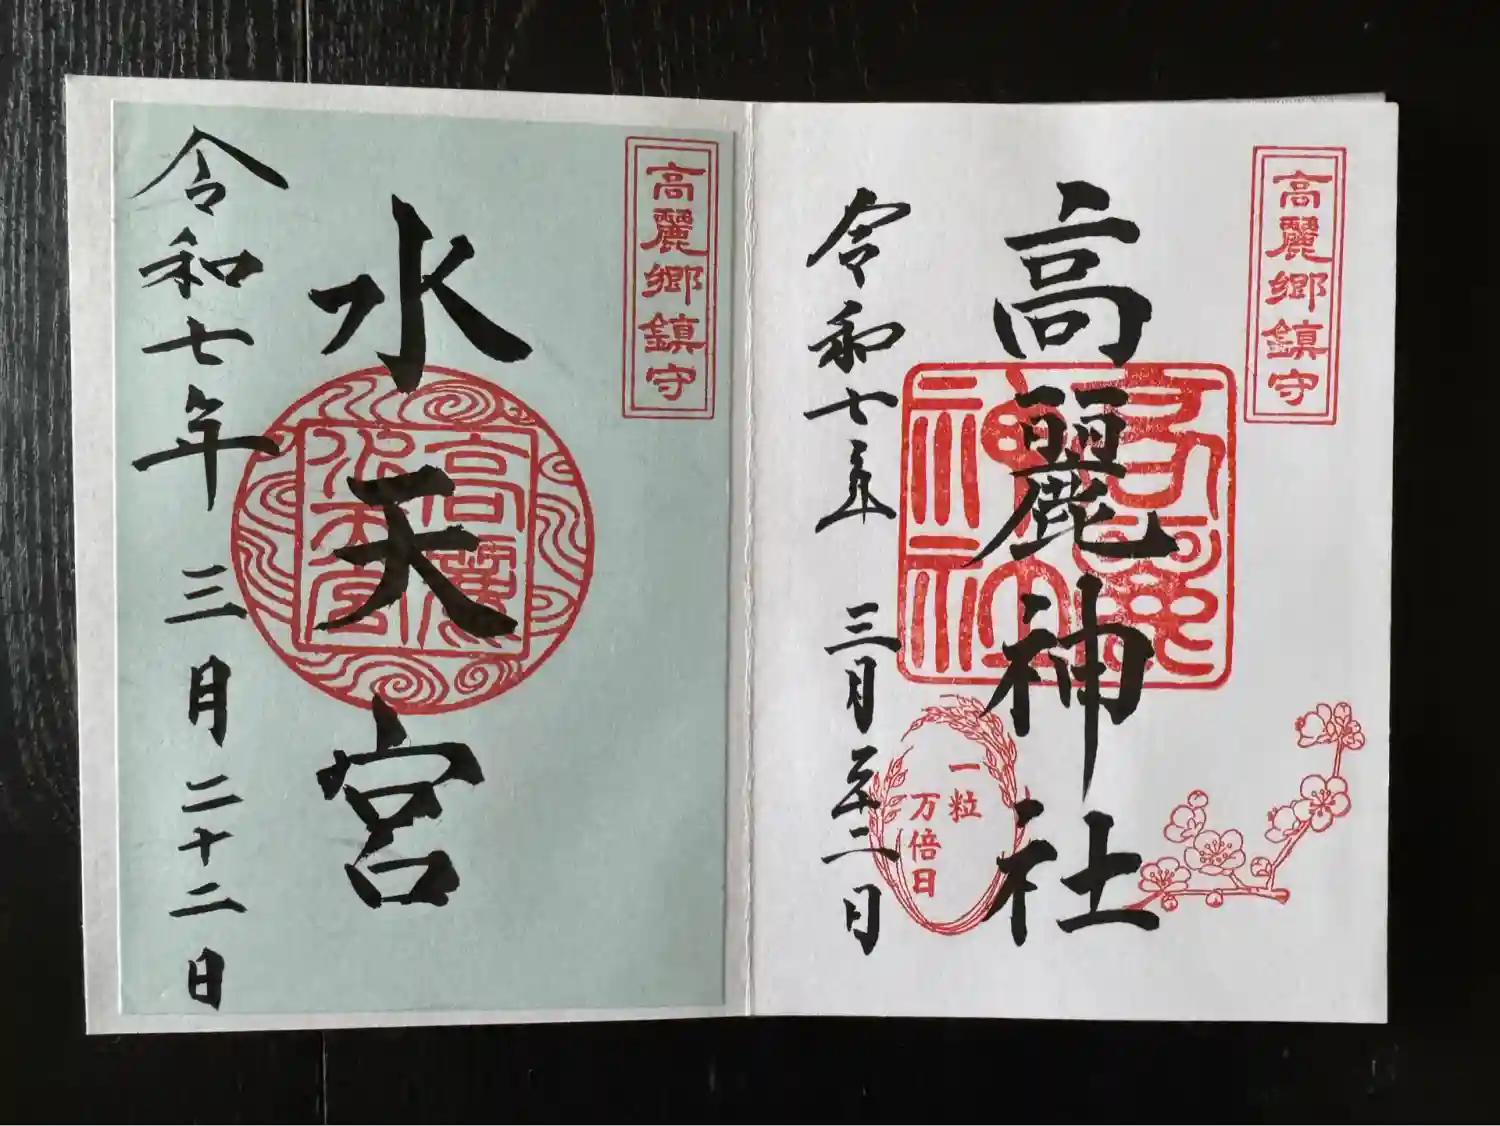 高麗郷鎮守
高麗神社
令和七年 三月二十二日
神社
一粒
万倍日
高麗郷鎮守
水天宮
高麗
水天宮
令和七年 三月二十二日